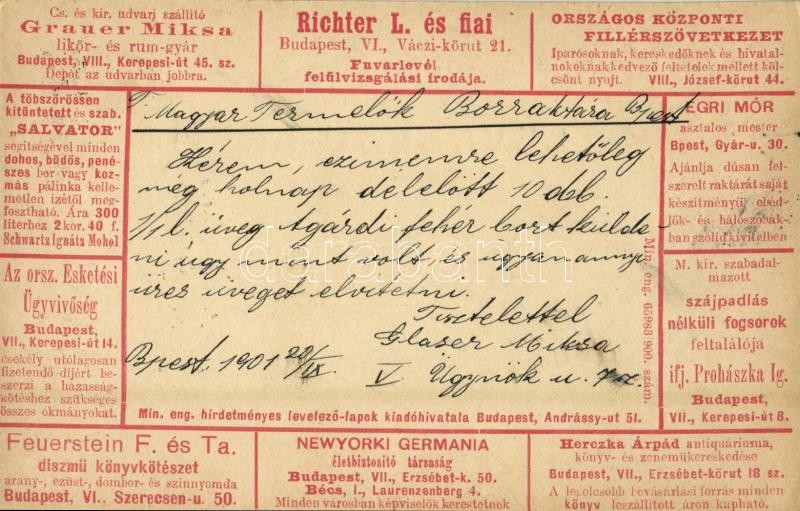 Cs. és kir. udvari szállító
Grauer Miksa
likőr- és rum-gyár
Budapest, VIII., Kerepesi-út 45. sz.
Depôt az udvarban jobbra.
Richter L. és fiai
Budapest, VI., Váczi-körut 21.
Fuvarlevél
felülvizsgálási irodája.
ORSZÁGOS KÖZPONTI
FILLÉRSZÖVETKEZET
Iparosoknak, kereskedőknek és hivatal-
nokoknak kedvező feltételek mellett köl-
csönt nyujt. VIII., József-körut 44.
A többszörössen
kitüntetett és szab.
„SALVATOR”
segitségével minden
dohos, büdös, pené-
szes bor vagy koz-
más pálinka kelle-
metlen izétől meg-
fosztható. Ára 300
literhez 2 kor. 40 f.
Schwartz Ignátz Mohol
Az orsz. Esketési
Ügyvivőség
Budapest,
VII., Kerepesi-út 14.
csekély utólagosan
fizetendő díjért be-
szerzi a házasság-
kötéshez szükséges
összes okmányokat.
T. Magyar Termelők Borraktára Bpest
Kérem, czimemre lehetőleg
még holnap délelőtt 10 dbb.
1/1 l. üveg Agárdi fehér bort külde-
ni úgy mint volt és ugyan annyi
üres üveget elvitetni.
Tisztelettel
Glaser Miksa
Bpest. 1901 20/IX V Ügynök u. 7 sz.
Min. eng. 65983/900. szám.
Min. eng. hirdetményes levelező-lapok kiadóhivatala Budapest, Andrássy-ut 51.
EGRI MÓR
asztalos mester
Bpest, Gyár-u. 30.
Ajánlja dúsan fel-
szerelt raktárát saját
készítményű ebéd-
lők- és hálószobák-
ban szolid kivitelben
M. kir. szabadal-
mazott
szájpadlás
nélküli fogsorok
feltalálója
ifj. Prohászka Ig.
Budapest,
VII., Kerepesi-út 8.
Feuerstein F. és Ta.
diszmű könyvkötészet
arany-, ezüst-, dombor- és szinnyomda
Budapest, VI., Szerecsen-u. 50.
NEWYORKI GERMANIA
életbiztosító társaság
Budapest, VII., Erzsébet-k. 50.
Bécs, I., Laurenzenberg 4.
Minden városban képviselők kerestetnek
Herczka Árpád antiquáriuma,
könyv- és zeneműkereskedése
Budapest, VII., Erzsébet-körut 18 sz.
A legolcsóbb bevásárlási forrás minden
könyv leszállított áron kapható.
darabanth